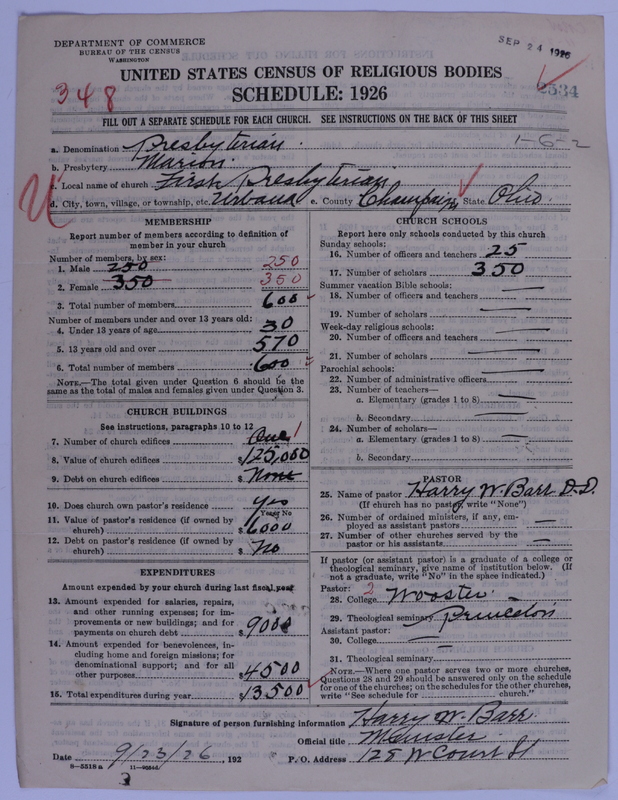 DEPARTMENT OF COMMERCE
BUREAU OF THE CENSUS
WASHINGTON
SEP 24 1926
UNITED STATES CENSUS OF RELIGIOUS BODIES
SCHEDULE: 1926
348
2534
FILL OUT A SEPARATE SCHEDULE FOR EACH CHURCH. SEE INSTRUCTIONS ON THE BACK OF THIS SHEET
a. Denomination Presbyterian 1-6-2
b. Presbytery Marion
c. Local name of church First Presbyterian
d. City, town, village, or township, etc. Urbana e. County Champaign State Ohio
MEMBERSHIP
Report number of members according to definition of
member in your church
Number of members, by sex:
1. Male 250 250
2. Female 350 350
3. Total number of members 600
Number of members under and over 13 years old:
4. Under 13 years of age 30
5. 13 years old and over 570
6. Total number of members 600
NOTE.—The total given under Question 6 should be the
same as the total of males and females given under Question 3.
CHURCH BUILDINGS
See instructions, paragraphs 10 to 12
7. Number of church edifices One 1
8. Value of church edifices $125,000
9. Debt on church edifices $ None
10. Does church own pastor's residence Yes
Yes or No
11. Value of pastor's residence (if owned by
church) $6000
12. Debt on pastor's residence (if owned by
church) $ No
EXPENDITURES
Amount expended by your church during last fiscal year
13. Amount expended for salaries, repairs,
and other running expenses; for im-
provements or new buildings; and for
payments on church debt $9000
14. Amount expended for benevolences, in-
cluding home and foreign missions; for
denominational support; and for all
other purposes $4500
15. Total expenditures during year $13500
CHURCH SCHOOLS
Report here only schools conducted by this church
Sunday schools:
16. Number of officers and teachers 25
17. Number of scholars 350
Summer vacation Bible schools:
18. Number of officers and teachers
19. Number of scholars
Week-day religious schools:
20. Number of officers and teachers
21. Number of scholars
Parochial schools:
22. Number of administrative officers
23. Number of teachers—
a. Elementary (grades 1 to 8)
b. Secondary
24. Number of scholars—
a. Elementary (grades 1 to 8)
b. Secondary
PASTOR
25. Name of pastor Harry W. Barr D.D.
(If church has no pastor, write "None")
26. Number of ordained ministers, if any, em-
ployed as assistant pastors
27. Number of other churches served by the
pastor or his assistants
If pastor (or assistant pastor) is a graduate of a college or
theological seminary, give name of institution below. (If
not a graduate, write "No" in the space indicated.)
Pastor: 2
28. College Wooster
29. Theological seminary Princeton
Assistant pastor:
30. College
31. Theological seminary
NOTE.—Where one pastor serves two or more churches,
Questions 28 and 29 should be answered only on the schedule
for one of the churches; on the schedules for the other churches,
write "See schedule for church."
Signature of person furnishing information Harry W. Barr
Official title Minister
Date 9/23/26, 192 P. O. Address 128 W Court St
8—5518 a